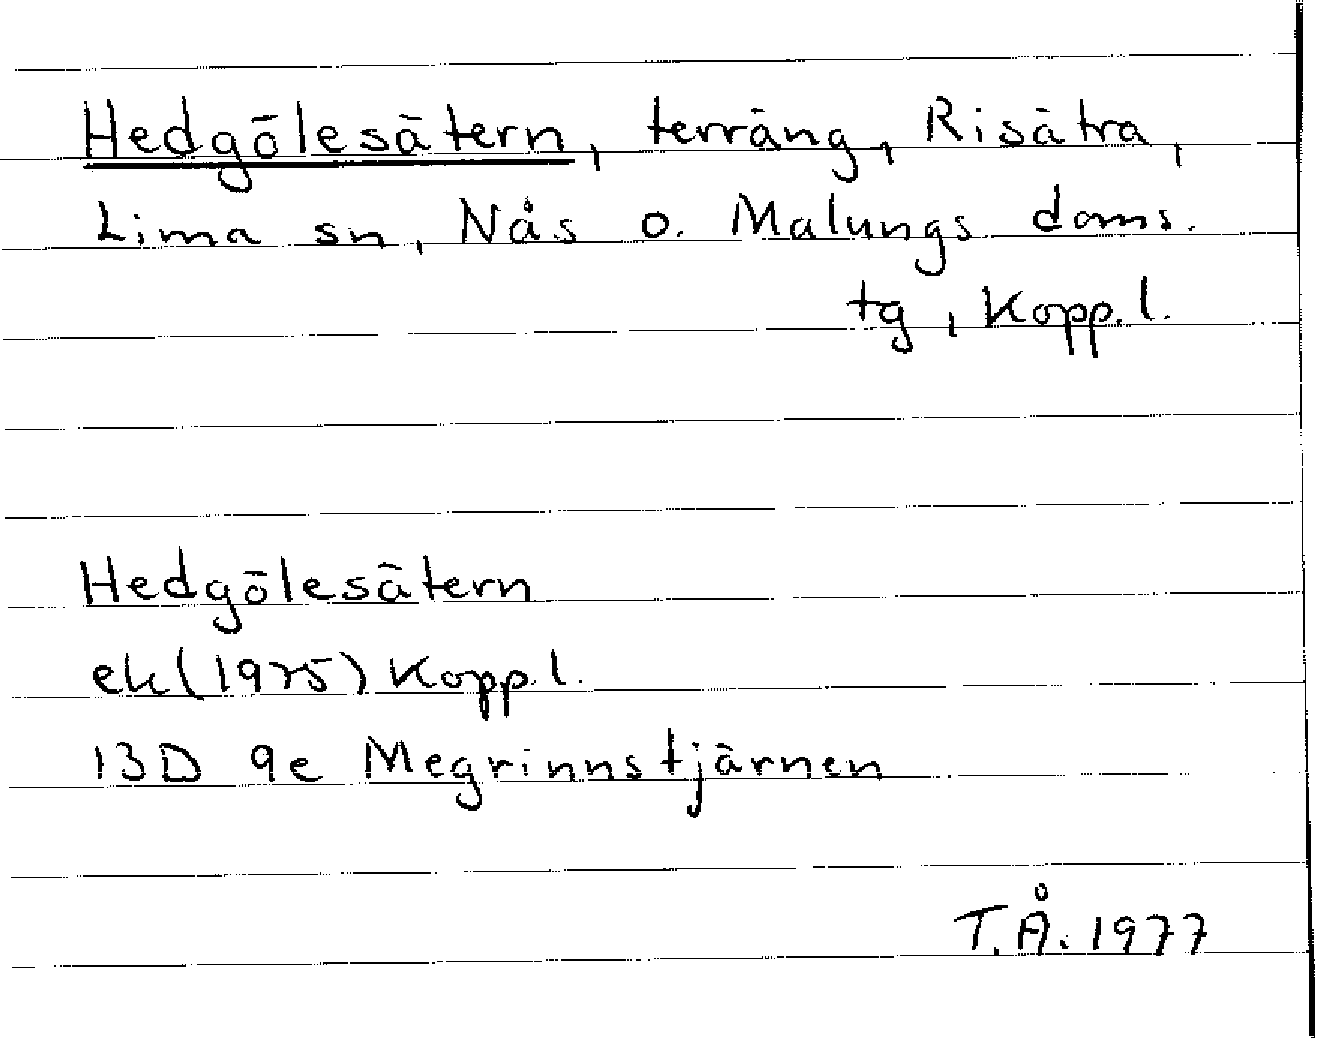 Hedgölesätern, terräng, Risätra,
Lima sn, Nås o. Malungs doms.
tg, Kopp.l.
Hedgölesätern
ek(1975) Kopp.l.
13D 9e Megrinnstjärnen
T.Å. 1977